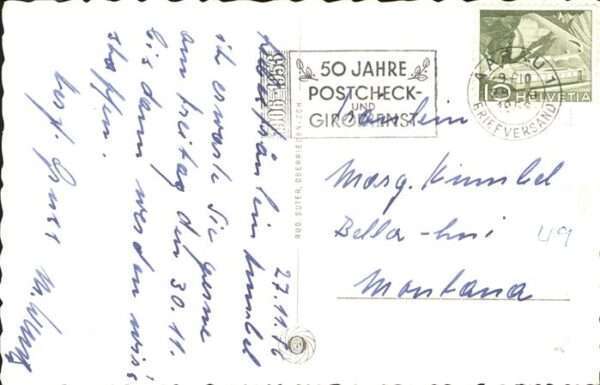 27.11.56
Liebes Fräulein Kumbel
ich erwarte Sie gerne
am Freitag den 30.11.
bis dann werden wir's
schaffen.
best. Gruss
1906-1956
50 JAHRE
POSTCHECK-
UND
GIRODIENST
AARAU 1
BRIEFVERSAND
10 HELVETIA
RUD. SUTER, OBERRIEDEN-ZCH
Fräulein
Marg. Kumbel
Bella-Lui
Montana
49